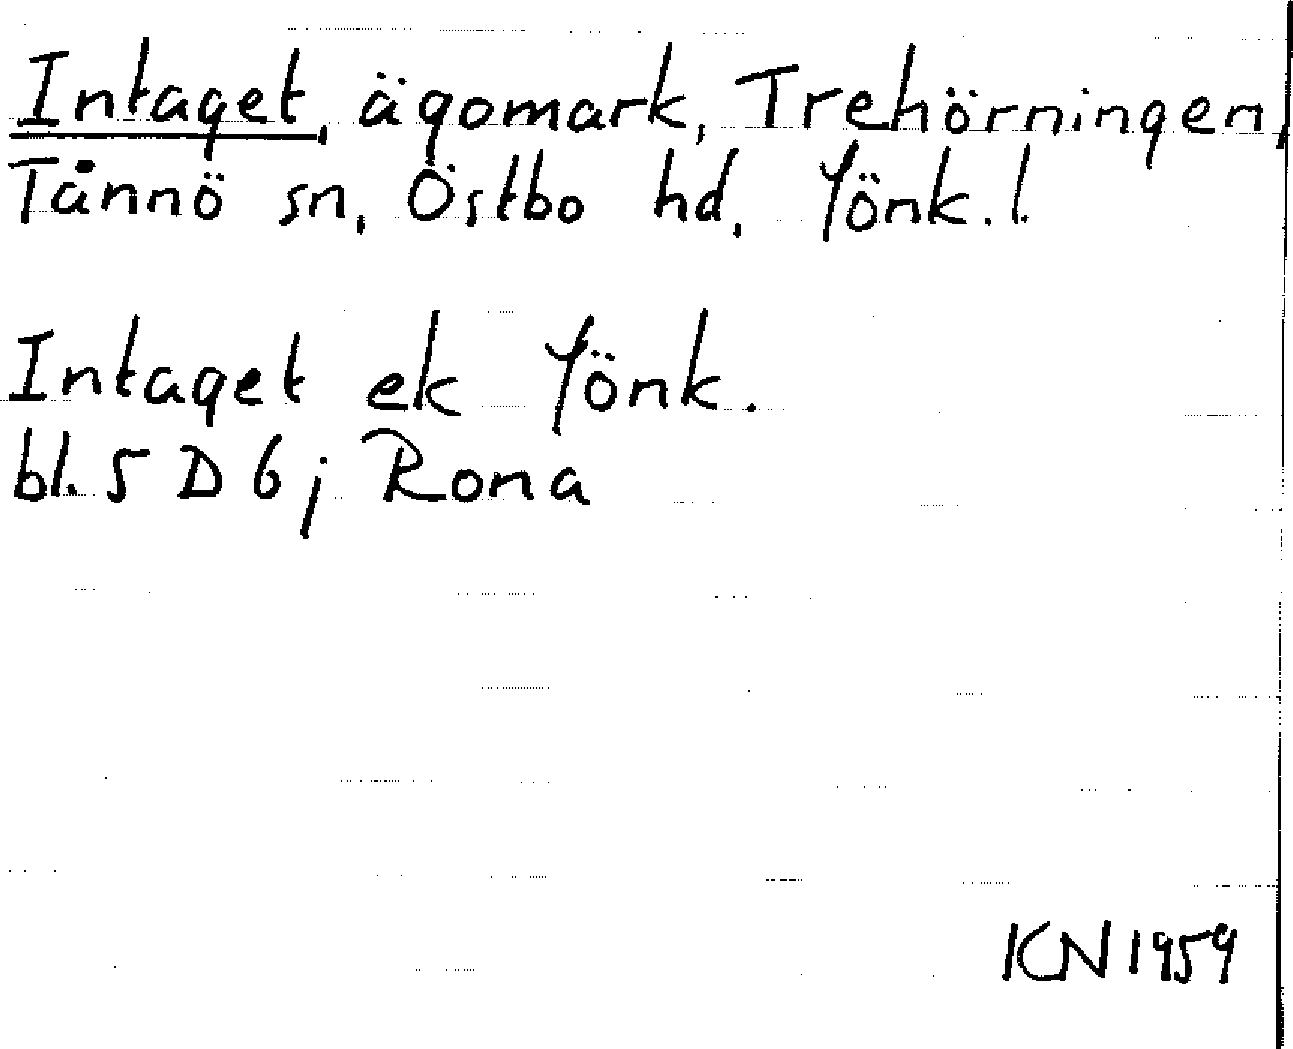 Intaget, ägomark, Trehörningen,
Tånnö sn, Östbo hd, Jönk. l.
Intaget ek Jönk.
bl. 5 D 6 j Rona
KN 1959